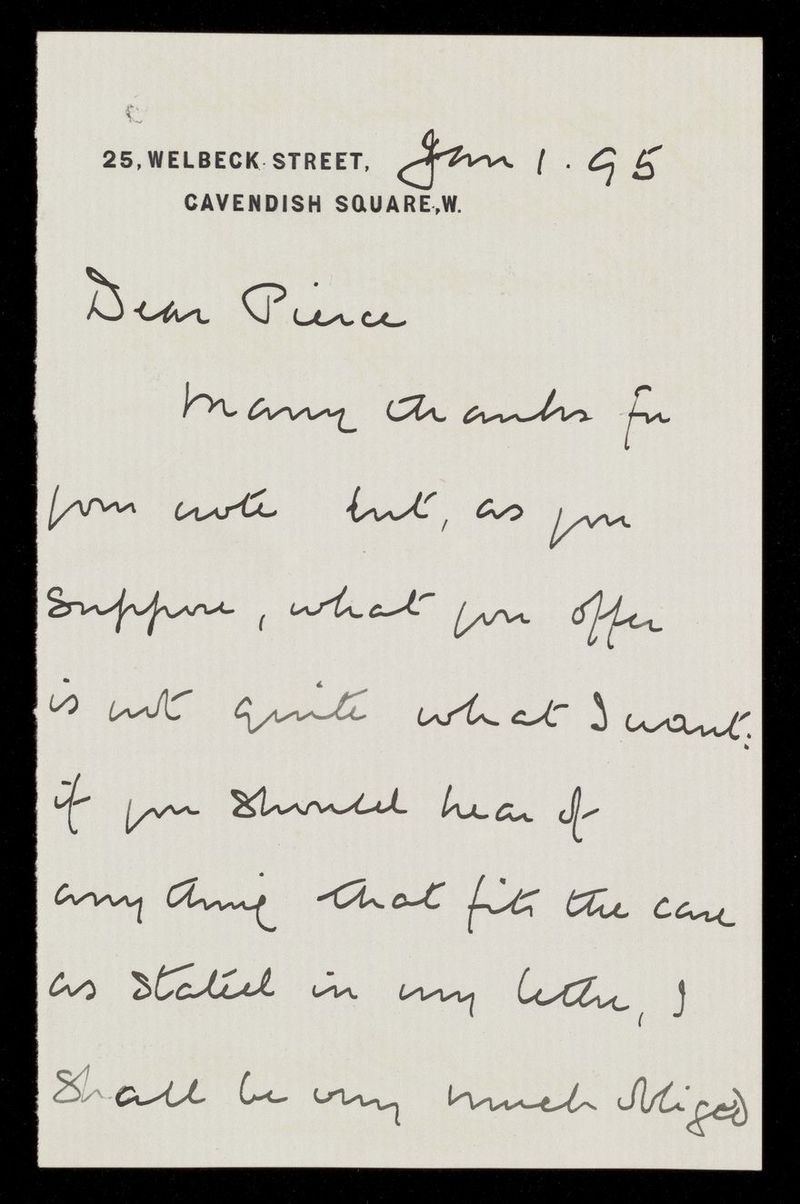 25, WELBECK STREET, Jan 1. 95
CAVENDISH SQUARE, W.
Dear Pierce
Many thanks for
your note but, as you
suppose, what you offer
is not quite what I want:
if you should hear of
anything that fits the case
as stated in my letter, I
shall be very much obliged